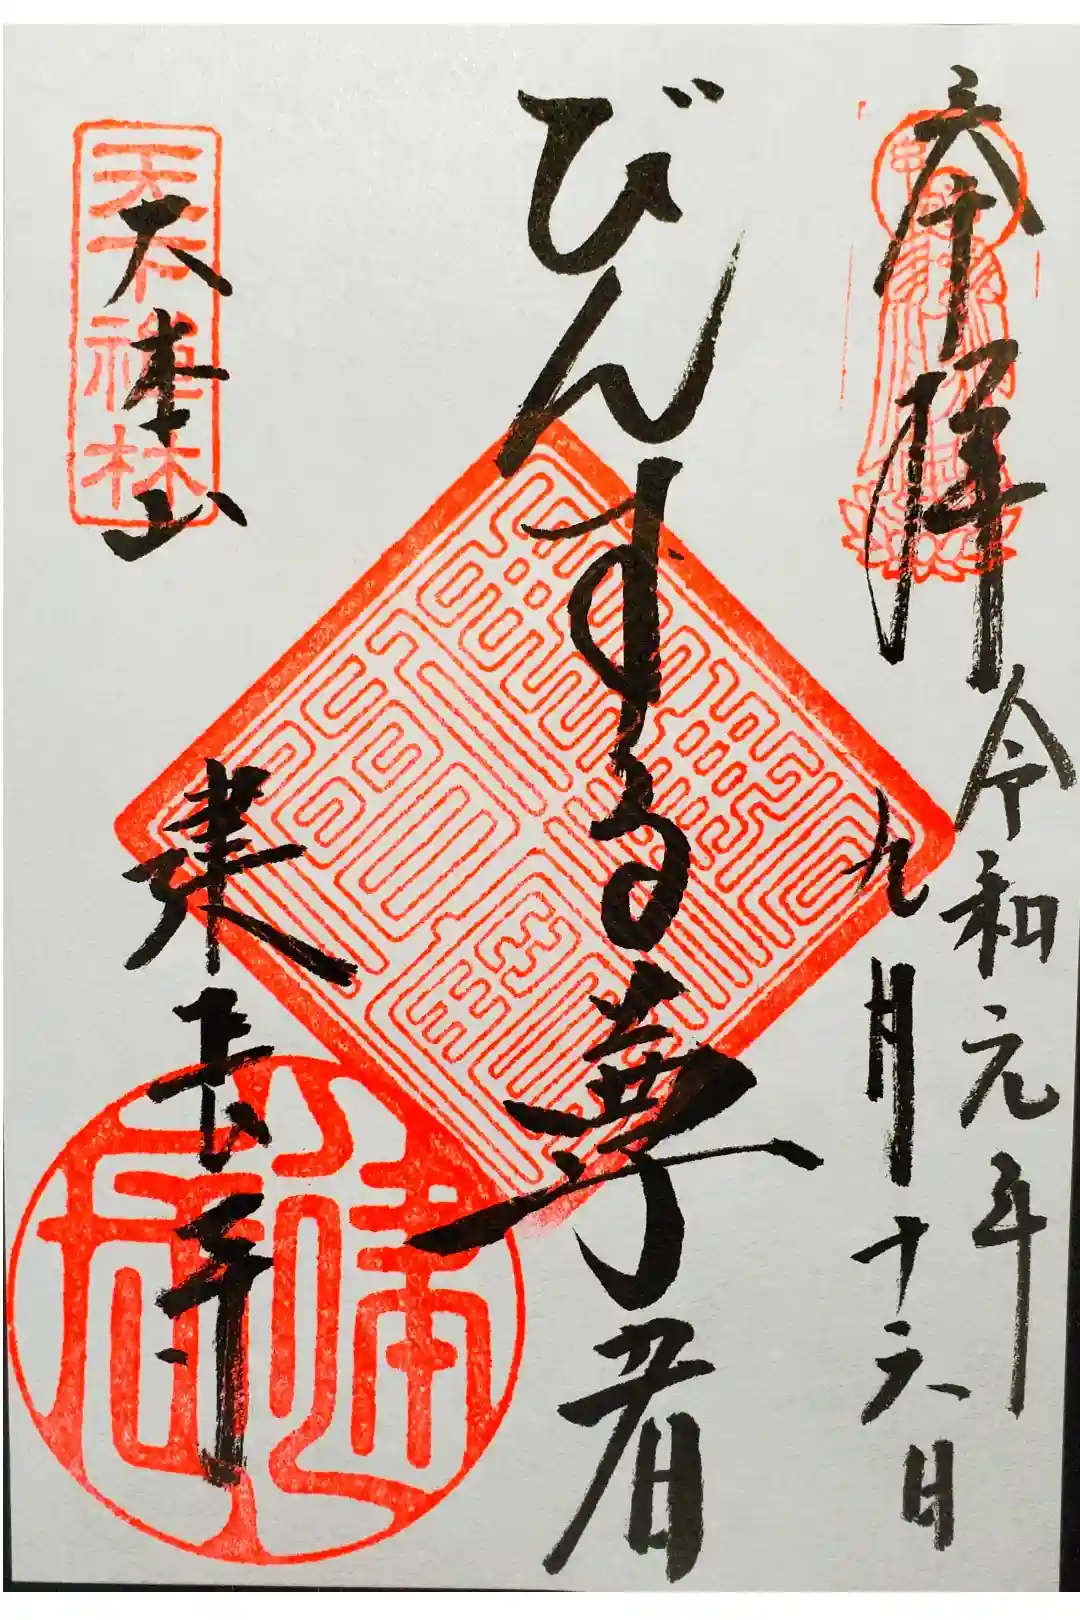 奉拝
令和元年
九月十六日
びんする尊者
天下禅林
大本山
建長寺